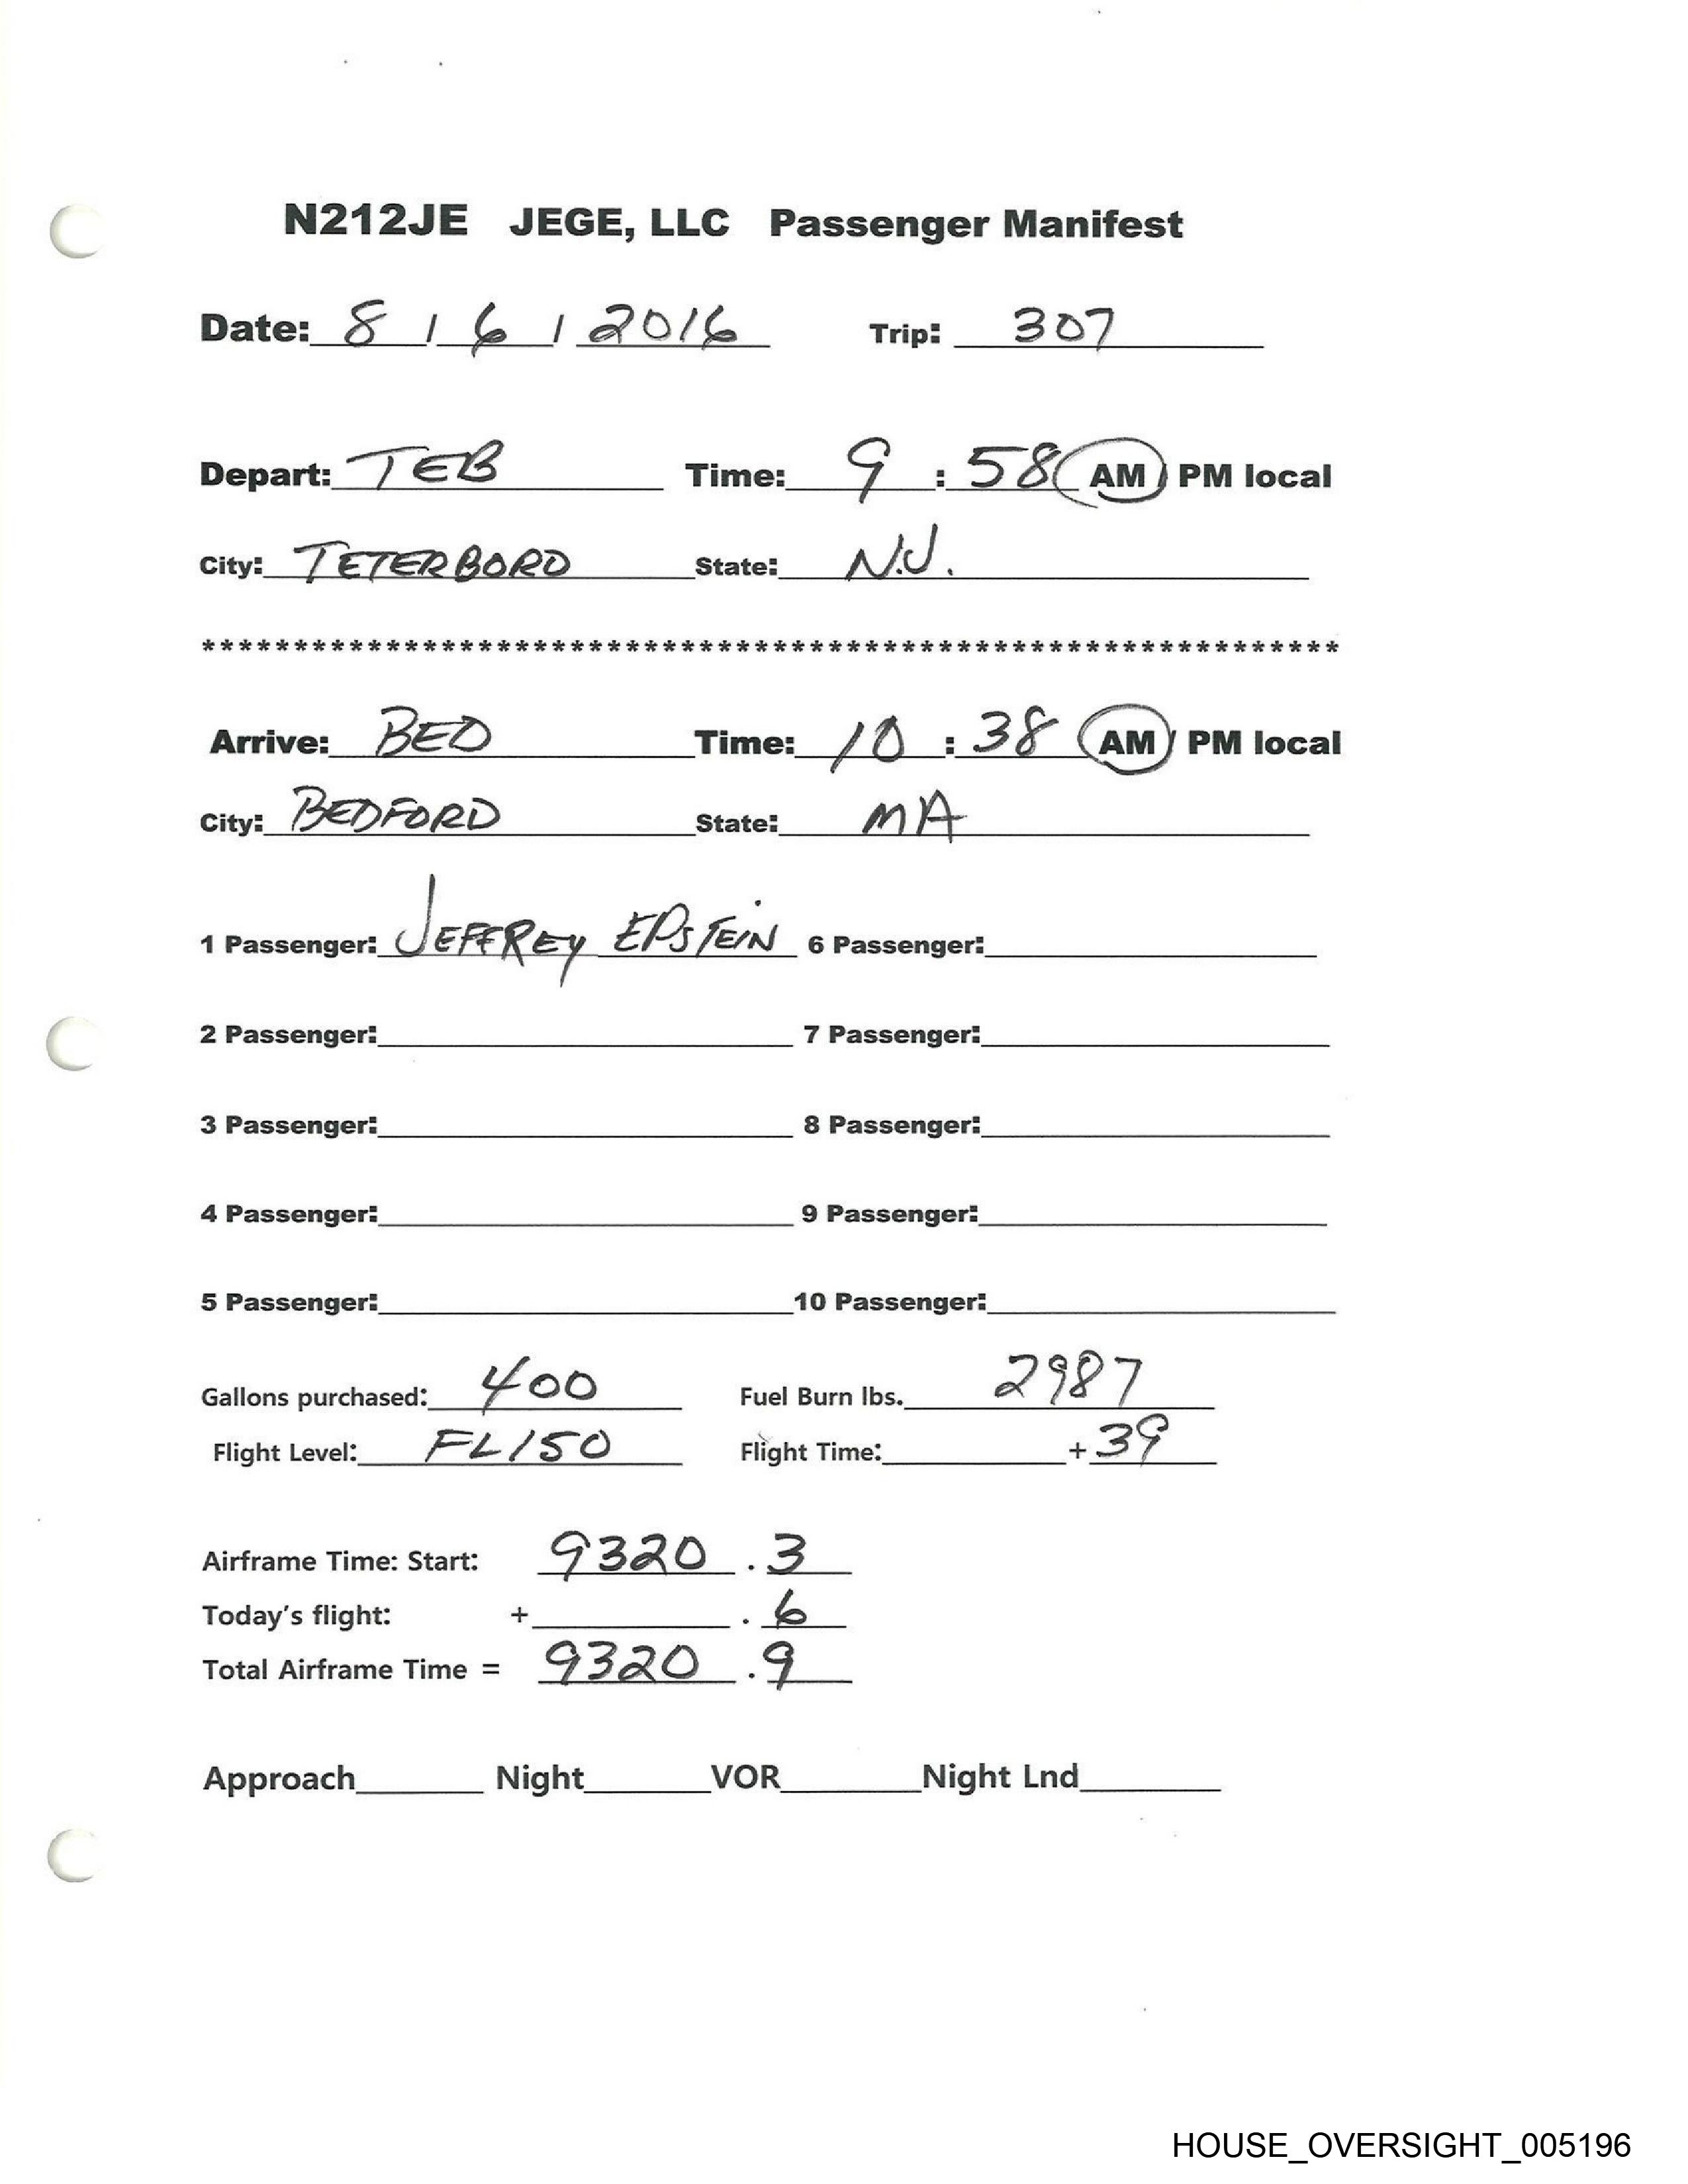 N212JE JEGE, LLC Passenger Manifest
Date: 8 / 6 / 2016 Trip: 307
Depart: TEB Time: 9 : 58 AM / PM local
City: TETERBORO State: N.J.
**************************************************************
Arrive: BED Time: 10 : 38 AM / PM local
City: BEDFORD State: MA
1 Passenger: JEFFREY EPSTEIN 6 Passenger:
2 Passenger: 7 Passenger:
3 Passenger: 8 Passenger:
4 Passenger: 9 Passenger:
5 Passenger: 10 Passenger:
Gallons purchased: 400 Fuel Burn lbs. 2987
Flight Level: FL150 Flight Time: + 39
Airframe Time: Start: 9320 . 3
Today's flight: + . 6
Total Airframe Time = 9320 . 9
Approach Night VOR Night Lnd
HOUSE_OVERSIGHT_005196